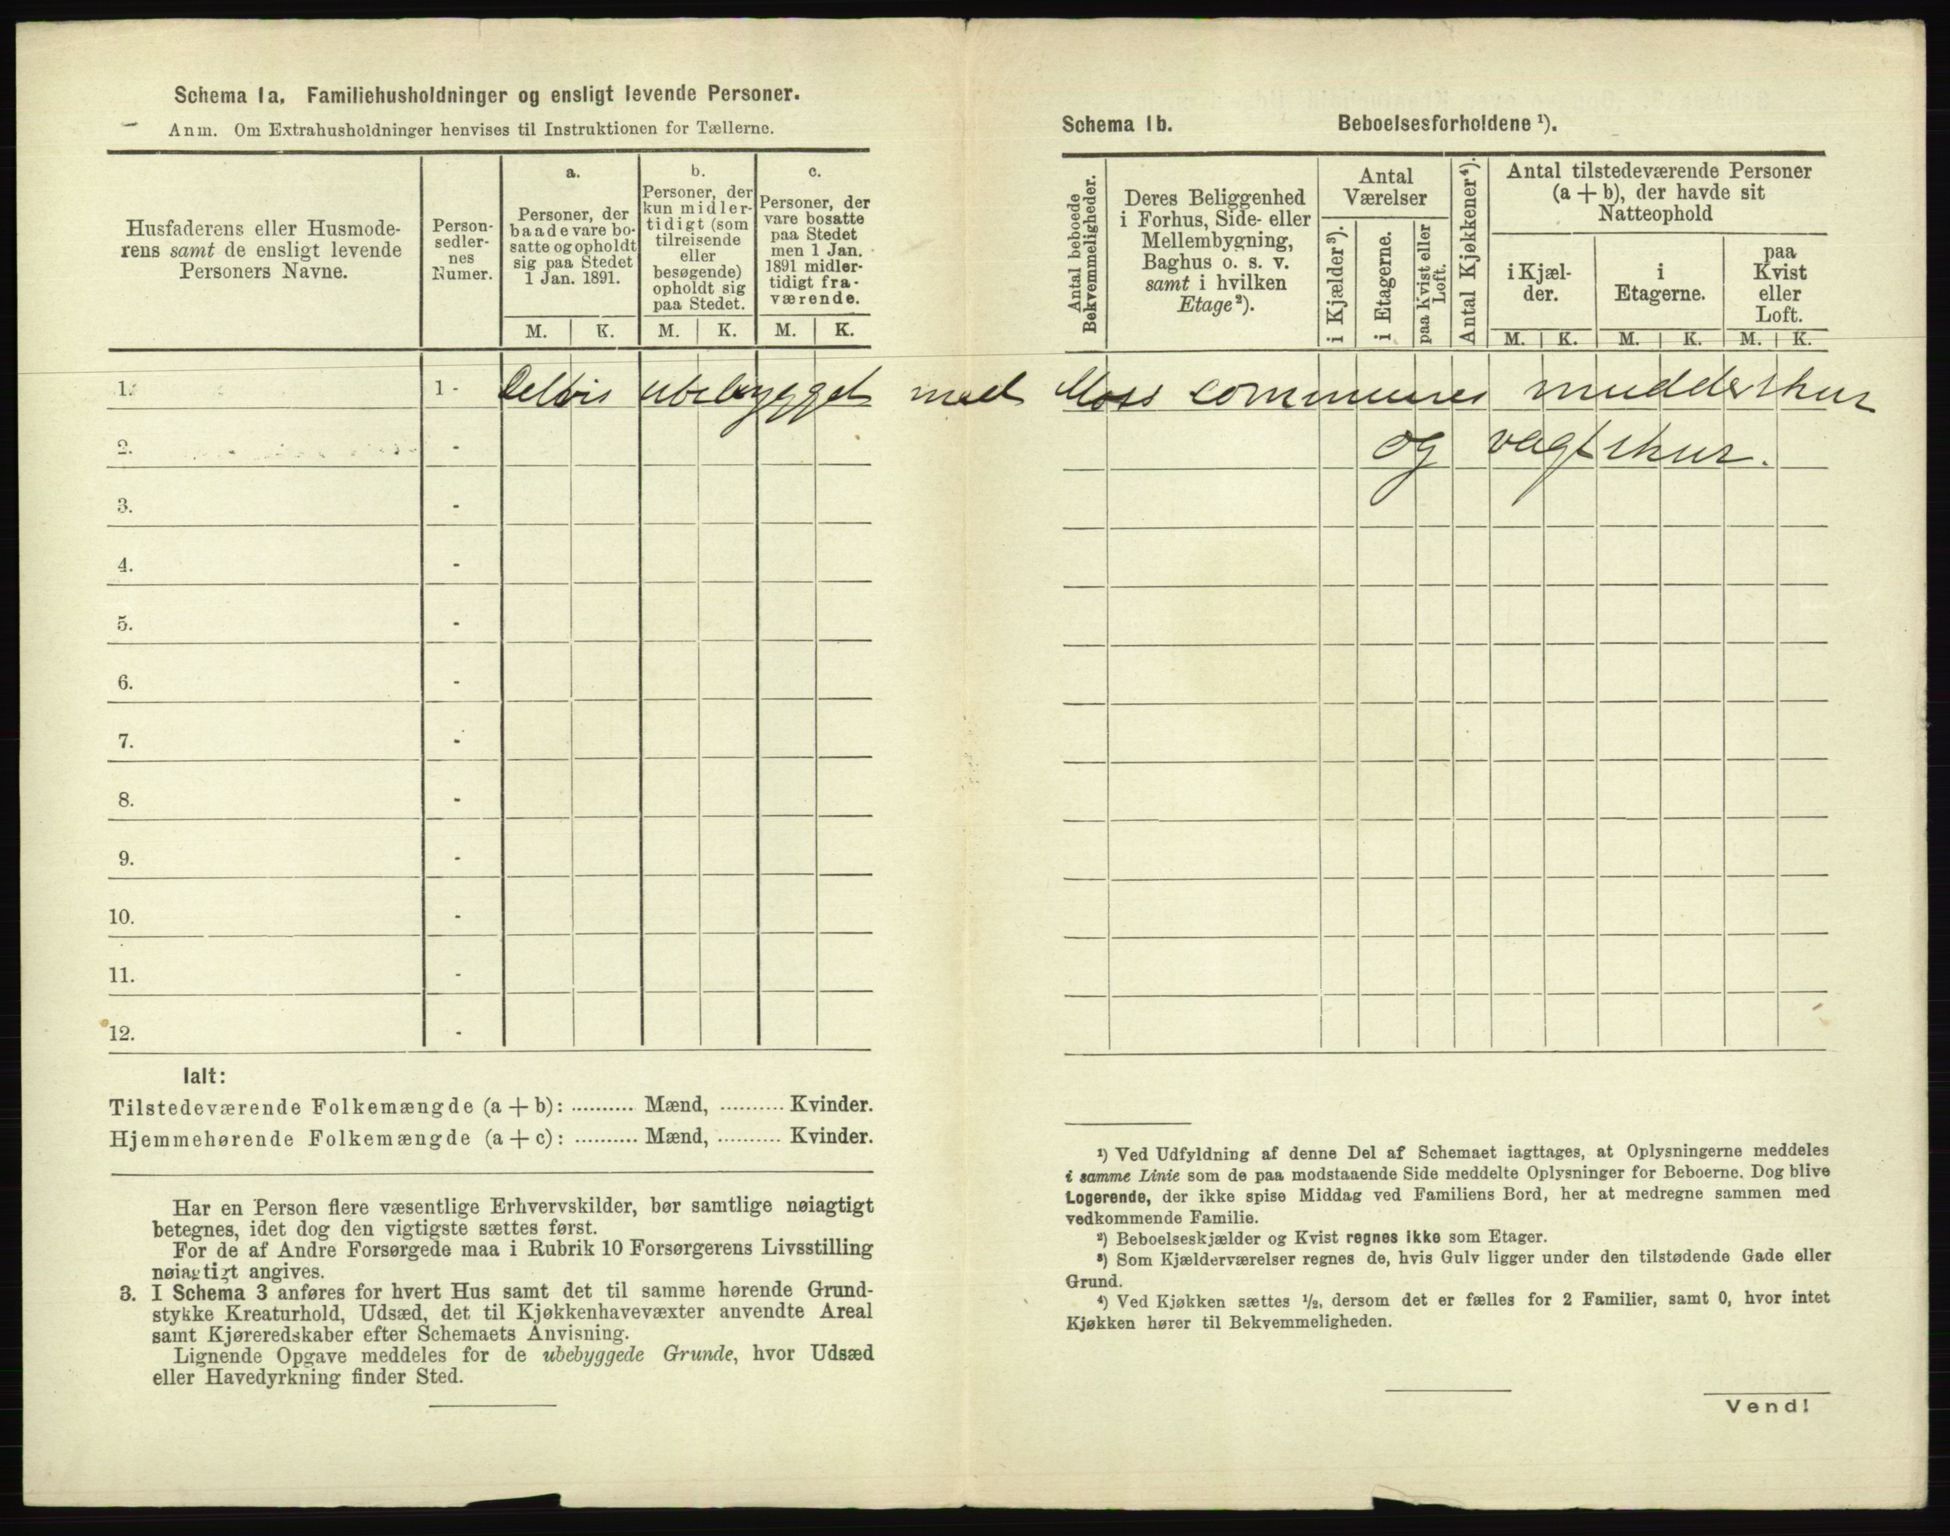 Schema 1a. Familiehusholdninger og ensligt levende Personer.
Anm. Om Extrahusholdninger henvises til Instruktionen for Tællerne.
Husfaderens eller Husmode-
rens samt de ensligt levende
Personers Navne.
Person-
sedler-
nes
Numer.
a.
Personer, der
baade vare bo-
satte og opholdt
sig paa Stedet
1 Jan. 1891.
b.
Personer, der
kun midler-
tidigt (som
tilreisende
eller
besøgende)
opholdt sig
paa Stedet.
c.
Personer, der
vare bosatte
paa Stedet
men 1 Jan.
1891 midler-
tidigt fra-
værende.
M. K. M. K. M. K.
1. 1 - Delvis ubebygget med Moss communes mudderskur
2. og vagtskur.
3. -
4. -
5. -
6. -
7. -
8. -
9. -
10. -
11. -
12. -
Ialt:
Tilstedeværende Folkemængde (a + b): .......... Mænd, .......... Kvinder.
Hjemmehørende Folkemængde (a + c): .......... Mænd, .......... Kvinder.
Har en Person flere væsentlige Erhvervskilder, bør samtlige nøiagtigt
betegnes, idet dog den vigtigste sættes først.
For de af Andre Forsørgede maa i Rubrik 10 Forsørgerens Livsstilling
nøiagtigt angives.
3. I Schema 3 anføres for hvert Hus samt det til samme hørende Grund-
stykke Kreaturhold, Udsæd, det til Kjøkkenhavevæxter anvendte Areal
samt Kjøreredskaber efter Schemaets Anvisning.
Lignende Opgave meddeles for de ubebyggede Grunde, hvor Udsæd
eller Havedyrkning finder Sted.
Schema 1b. Beboelsesforholdene ¹).
Antal beboede
Bekvemmeligheder.
Deres Beliggenhed
i Forhus, Side- eller
Mellembygning,
Baghus o. s. v.
samt i hvilken
Etage²).
Antal
Værelser
i Kjælder³).
i Etagerne.
paa Kvist eller
Loft.
Antal Kjøkkener⁴).
Antal tilstedeværende Personer
(a + b), der havde sit
Natteophold
i Kjæl-
der.
i
Etagerne.
paa
Kvist
eller
Loft.
M. K. M. K. M. K.
¹) Ved Udfyldning af denne Del af Schemaet iagttages, at Oplysningerne meddeles
i samme Linie som de paa modstaaende Side meddelte Oplysninger for Beboerne. Dog blive
Logerende, der ikke spise Middag ved Familiens Bord, her at medregne sammen med
vedkommende Familie.
²) Beboelseskjælder og Kvist regnes ikke som Etager.
³) Som Kjælderværelser regnes de, hvis Gulv ligger under den tilstødende Gade eller
Grund.
⁴) Ved Kjøkken sættes ½, dersom det er fælles for 2 Familier, samt 0, hvor intet
Kjøkken hører til Bekvemmeligheden.
Vend!